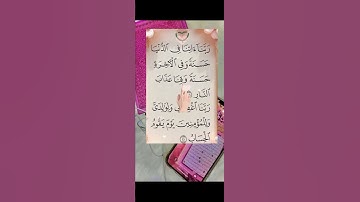 رَبَّنَا ءَاتِنَا فِى الدُّنْيَا
حَسَنَةً وَفِى الْاٰخِرَةِ
حَسَنَةً وَقِنَا عَذَابَ
النَّارِ
رَبَّنَا اغْفِرْ لِي وَلِوٰلِدَىَّ
وَلِلْمُؤْمِنِينَ يَوْمَ يَقُومُ
الْحِسَابُ